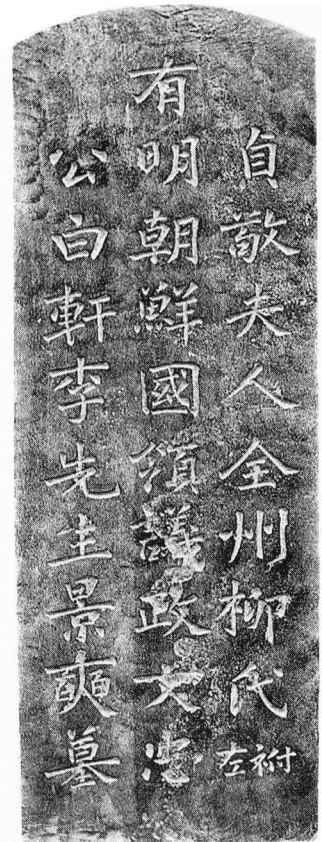 貞敬夫人全州柳氏祔左
有明朝鮮國領議政文忠
公白軒李先生景奭墓